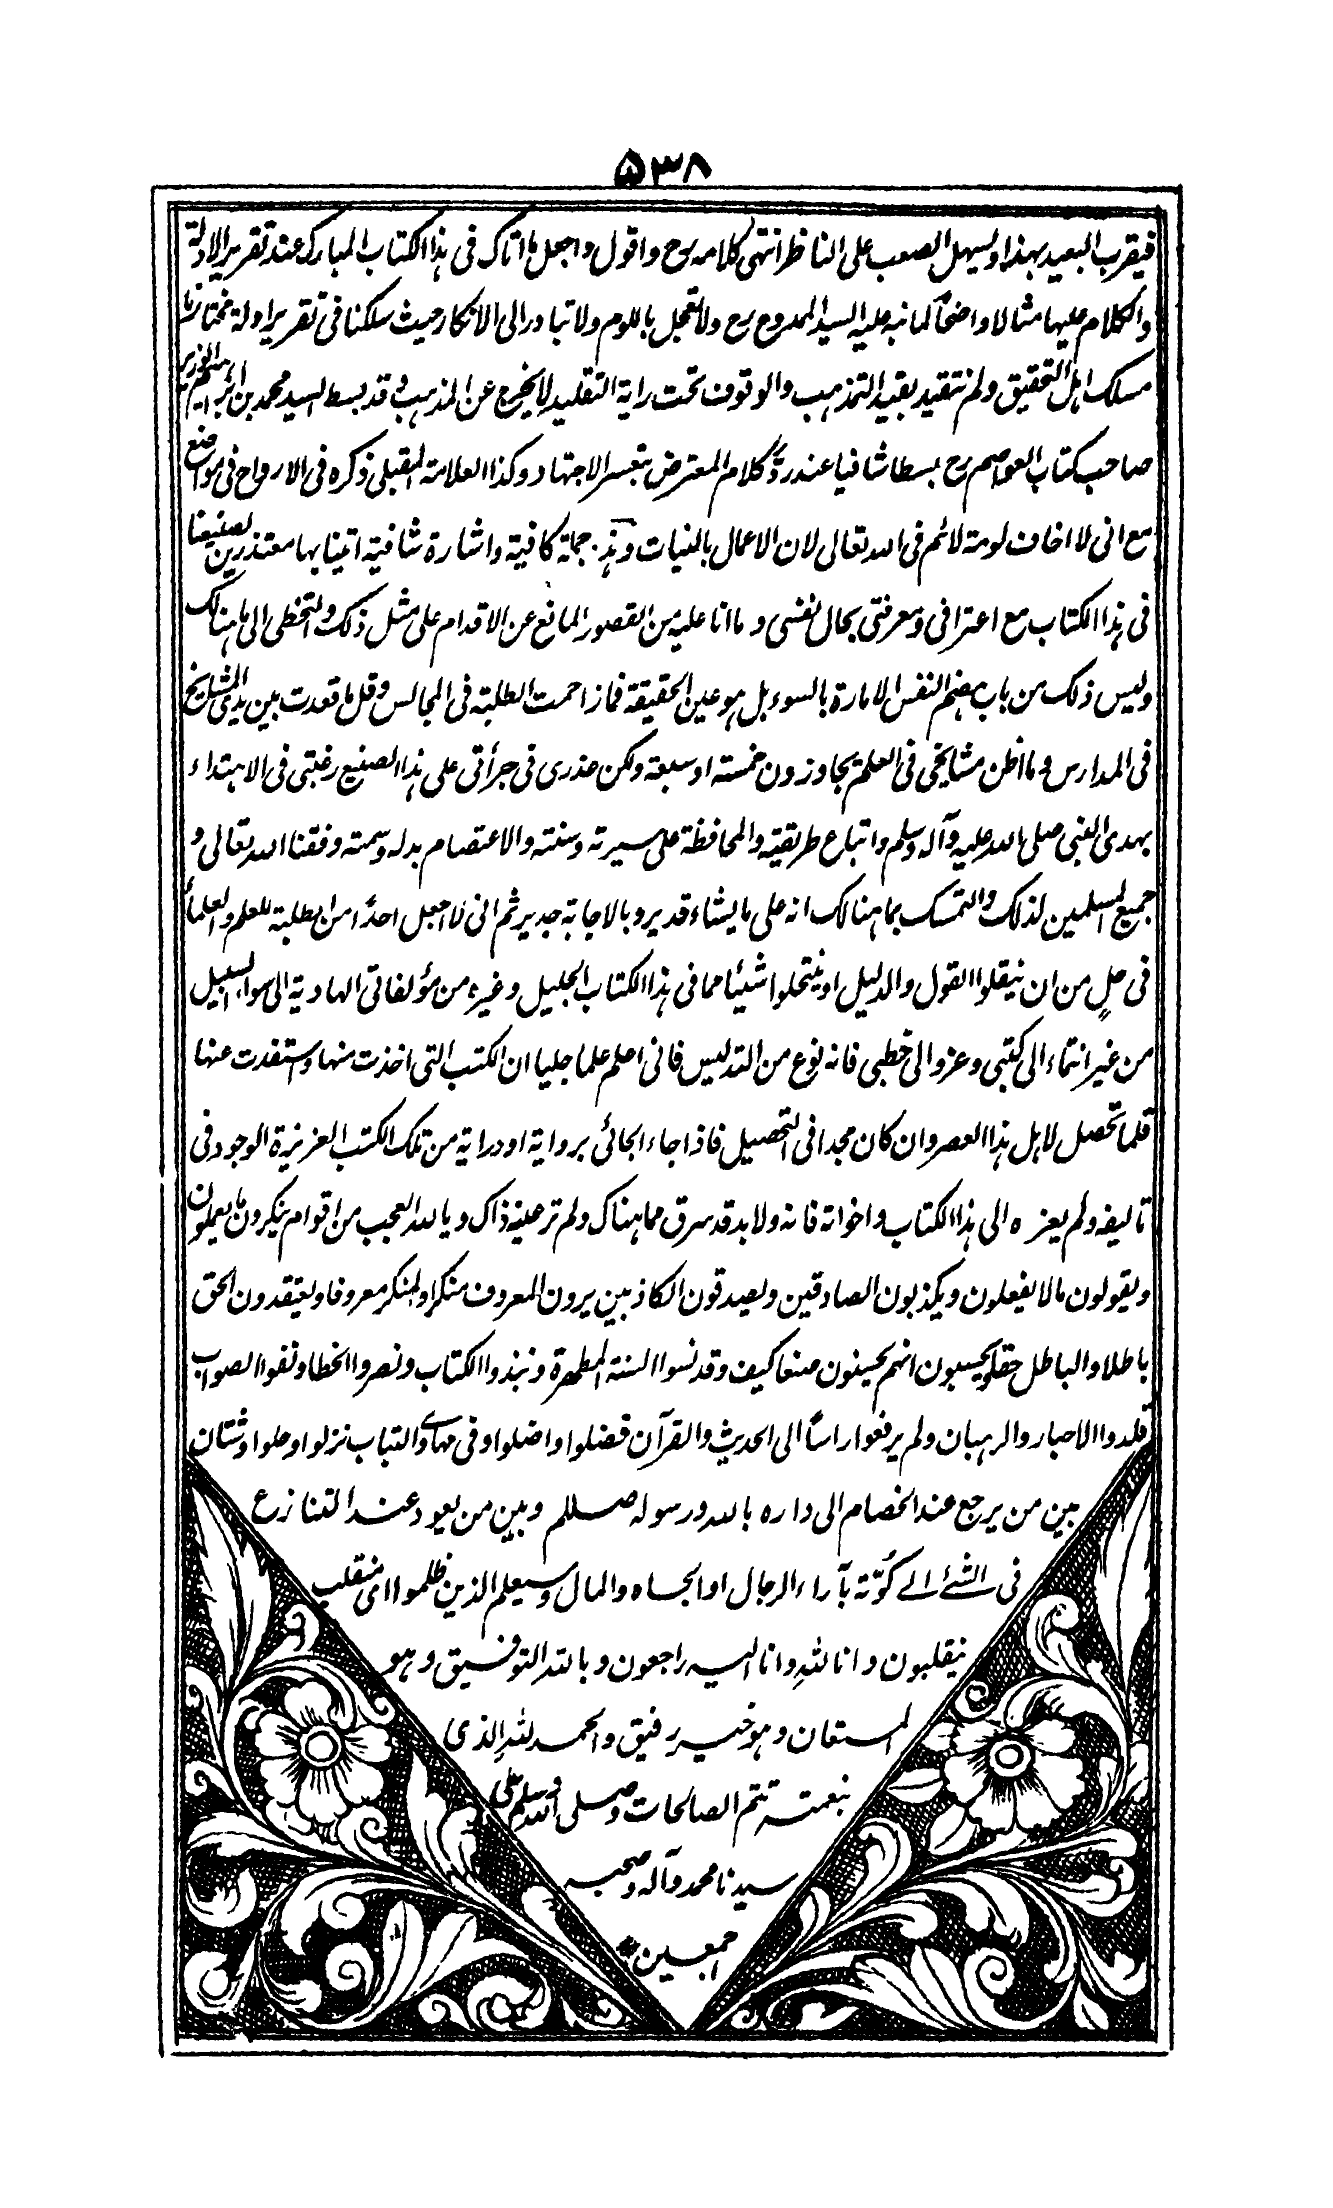 ۵۳۸
فيقرب البعيد بهذا ويسهل الصعب على الناظر انتهى كلامه رح واقول واجعل ما اتاك فى هذا الكتاب المبارك عند تقرير الادلة
والكلام عليها مثالا واضحا لما نبه عليه السيد الممدوح رح ولا تعجل باللوم ولا تبادر الى الانكار حيث سلكنا فى تقرير ادلة مختارنا
مسلك اهل التحقيق ولم نتقيد بقيد التمذهب والوقوف تحت راية التقليد لا يخرج عن المذهب وقد بسط السيد محمد بن ابراهيم الوزير
صاحب كتاب العواصم رح بسطا شافيا عند رد كلام المعترض بتعسر الاجتهاد وكذا العلامة المقبلى ذكره فى الارواح فى مواضع
مع انى لا اخاف لومة لائم فى الله تعالى لان الاعمال بالنيات وهذه جملة كافية واشارة شافية اتينا بها معتذرين لصنيعنا
فى هذا الكتاب مع اعترافى ومعرفتى بحال نفسى وما انا عليه من القصور المانع عن الاقدام على مثل ذلك والتخطى الى ما هنالك
وليس ذلك من باب هضم النفس الامارة بالسوء بل هو عين الحقيقة فما زاحمت الطلبة فى المجالس وقل ما قعدت بين يدى المشايخ
فى المدارس وما اظن مشايخى فى العلم يجاوزون خمسة او سبعة ولكن عذرى فى جرأتى على هذا الصنيع رغبتى فى الاهتداء
بهدى النبى صلى الله عليه وآله وسلم واتباع طريقته والمحافظة على سيرته وسنته والاعتصام بدله وسمته وفقنا الله تعالى و
جميع المسلمين لذلك والتمسك بما هنالك انه على ما يشاء قدير وبالاجابة جدير ثم انى لا اجعل احدًا من الطلبة للعلم والعلماء
فى حلٍ من ان ينقلوا القول والدليل او ينتحلوا شيئا مما فى هذا الكتاب الجليل وغيره من مؤلفاتى الهادية الى سواء السبيل
من غير انتماء الى كتبى وعزو الى خطبى فانه نوع من التدليس فانى اعلم علما جليا ان الكتب التى اخذت منها واستفدت عنها
قلما تحصل لاهل هذا العصر وان كان مجدا فى التحصيل فاذا جاء الجائى برواية او دراية من تلك الكتب العزيزة الوجود فى
تاليفه ولم يعزه الى هذا الكتاب واخواته فانه ولا بد قد سرق مما هناك ولم تر عينه ذاك ويا لله العجب من اقوام ينكرون ما يعملون
ويقولون ما لا يفعلون ويكذبون الصادقين ويصدقون الكاذبين يرون المعروف منكرا والمنكر معروفا ويعتقدون الحق
باطلا والباطل حقا ويحسبون انهم يحسنون صنعا كيف وقد نسوا السنة المطهرة ونبذوا الكتاب ونصروا الخطا ونفوا الصواب
قلدوا الاحبار والرهبان ولم يرفعوا راسا الى الحديث والقرآن فضلوا واضلوا وفى مهاوى التباب نزلوا وحلوا وشتان
بين من يرجع عند الخصام الى داره بالله ورسوله صللم وبين من يعود عند التنازع
فى الشئ الى كوّته بآراء الرجال او الجاه والمال وسيعلم الذين ظلموا اى منقلب
ينقلبون وانا لله وانا اليه راجعون وبالله التوفيق وهو
المستعان وهو خير رفيق والحمد لله الذى
بنعمته تتم الصالحات وصلى الله وسلم على
سيدنا محمد وآله وصحبه
اجمعين